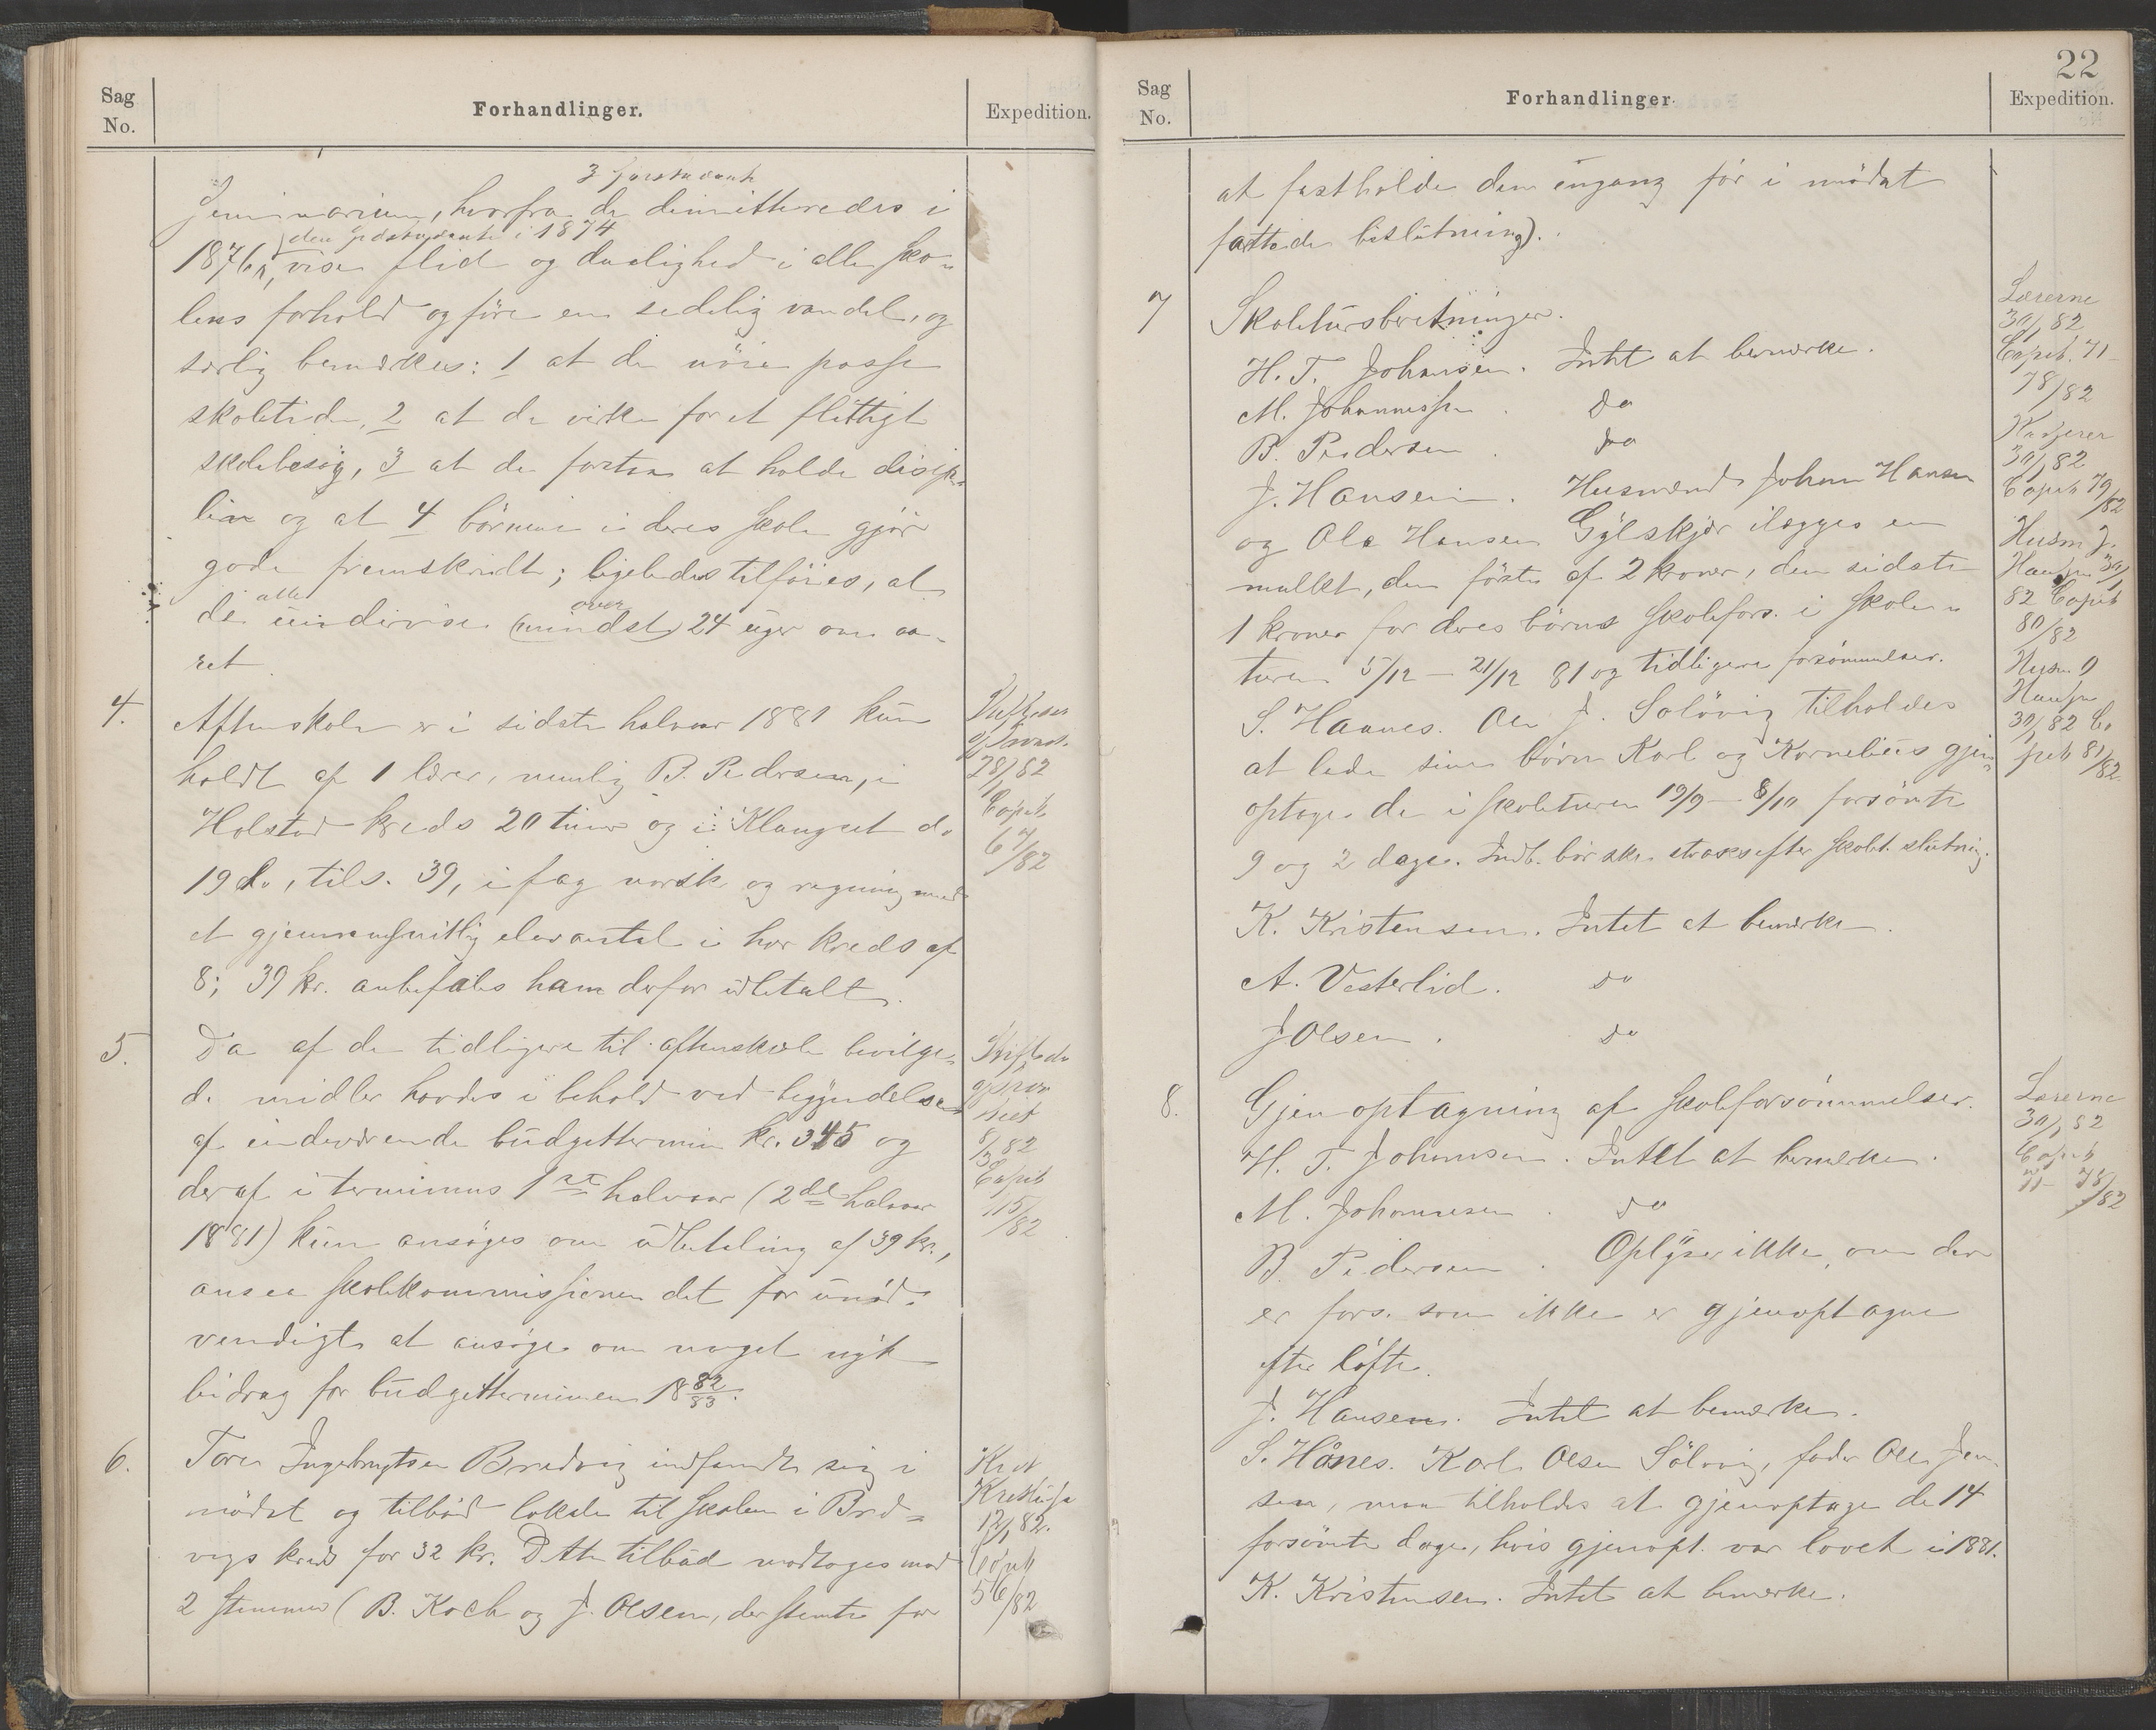 Sag No.
Forhandlinger.
Expedition.
3 förstnævnte
Seminarium, hvorfra de dimitteredes i
den sidstnævnte i 1874
1876, vise flid og duelighed i alle sko-
lens forhold og före en sedelig vandel, og
særlig bemærkes: 1 at de nöie passe
skoletiden, 2 at de virke for et flittigt
skolebesög, 3 at de forstaa at holde disip-
lin og at 4 börnene i deres skole gjör
gode fremskridt; ligeledes tilföies, at
de alle underviser (mindst) over 24 uger om aa-
ret
4.
Aftenskole er i sidste halvaar 1881 kun
holdt af 1 lærer, nemlig B. Pedersen, i
Holstad kreds 20 timer og i Klanget do
19 do, tils. 39, i fag norsk og regning med
et gjennemsnitlig elevantal i hver kreds af
8; 39 kr. anbefales ham derfor udbetalt.
28/1 82
Copib
67/82
5.
Da af de tidligere til aftenskole bevilge-
de midler havdes i behold ved begyndelsen
af indeværende budgettermin kr. 345 og
deraf i terminens 1ste halvaar (2det halvaar
1881) kun ansöges om udbetaling af 39 kr.,
ansee skolekommissionen det for unöd-
vendigt at ansöge om noget nyt
bidrag for budgetterminen 1882/83.
Stiftsdi
g. prov
stiet
8/3 82
Copib
115/82
6.
Tore Ingebrigtsen Bredvig indfandt sig i
mödet og tilböd lokale til skolen i Bred-
vigs kreds for 32 kr. Dette tilbud modtoges mod
2 stemmer (B. Koch og J. Olsen, der stemte for
12/1 82.
Copib
56/82
22
Sag No.
Forhandlinger.
Expedition.
at fastholde den engang för i mödet
fattede beslutning).
7
Skoletursberetninger.
H. T. Johansen. Intet at bemærke.
M. Johannessen. do
B. Pedersen. do
J. Hansen. Husmænd Johan Hansen
og Ole Hansen Gylskjær ilægges en
mulkt, den förste af 2 kroner, den sidste
1 kroner for deres börns skolefors. i skole-
turen 5/12 - 21/12 81 og tidligere forsömmelser.
S. Haanes. Ole J. Solövig tilholdes
at lade sine börn Karl og Kornelius gjen-
optage de i skoleturen 19/9 - 8/10 forsömte
9 og 2 dage. Indb. bör ske straks efter skolet. slutning.
K. Kristensen. Intet at bemærke.
A. Vesterlid. do
J Olsen. do
Lærerne
30/1 82
Copib. 71-
78/82
Kasserer
30/1 82
Copib 79/82
Husm J.
Hansen 30/1
82 Copib
80/82
Husm O
Hansen
30/1 82 Co
pib 81/82.
8.
Gjenoptagning af skoleforsömmelser.
H. T. Johansen. Intet at bemærke.
M. Johannesen. do
B. Pedersen. Oplyser ikke, om der
er fors. som ikke er gjenoptagne
efter löfte.
J. Hansen. Intet at bemærke.
S. Hånes. Karl Olsen Sölövig, fader Ole Jen-
sen, maa tilholdes at gjenoptage de 14
forsömte dage, hvis gjenopt. var lovet i 1881.
K. Kristensen. Intet at bemærke.
Lærerne
30/1 82
Copib
71- 78/82